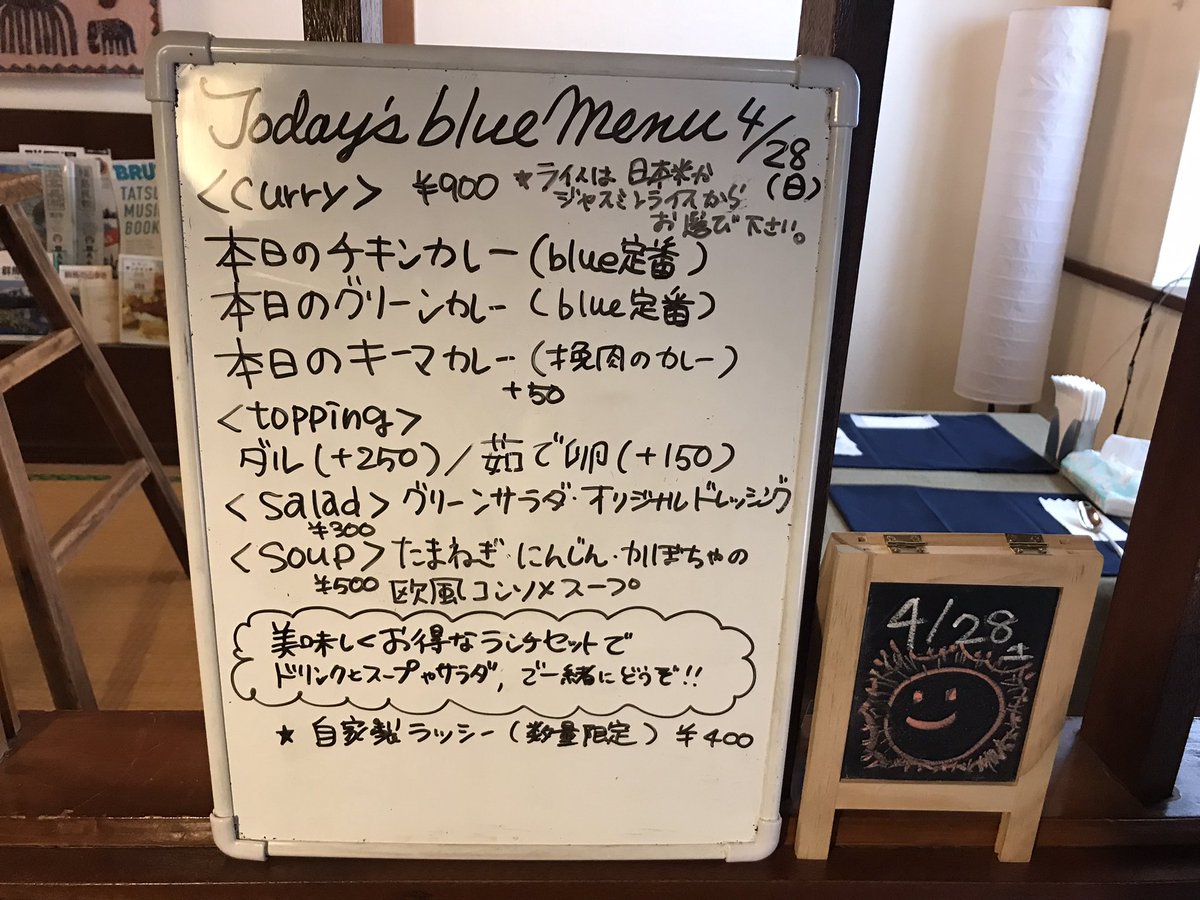 Today's blue Menu 4/28
(日)
<curry> ¥900 ★ライスは 日本米か
ジャスミンライスから
お選び下さい。
本日のチキンカレー(blue定番)
本日のグリーンカレー(blue定番)
本日のキーマカレー(挽肉のカレー)
+50
<topping>
ダル(+250)/茹で卵(+150)
<salad>グリーンサラダ・オリジナルドレッシング
¥300
<soup>たまねぎ・にんじん・かぼちゃの
¥500 欧風コンソメスープ
美味しくお得なランチセットで
ドリンクとスープやサラダ,ご一緒にどうぞ!!
★ 自家製ラッシー(数量限定)¥400
4/28
TATSU
MUSIC
BOOK